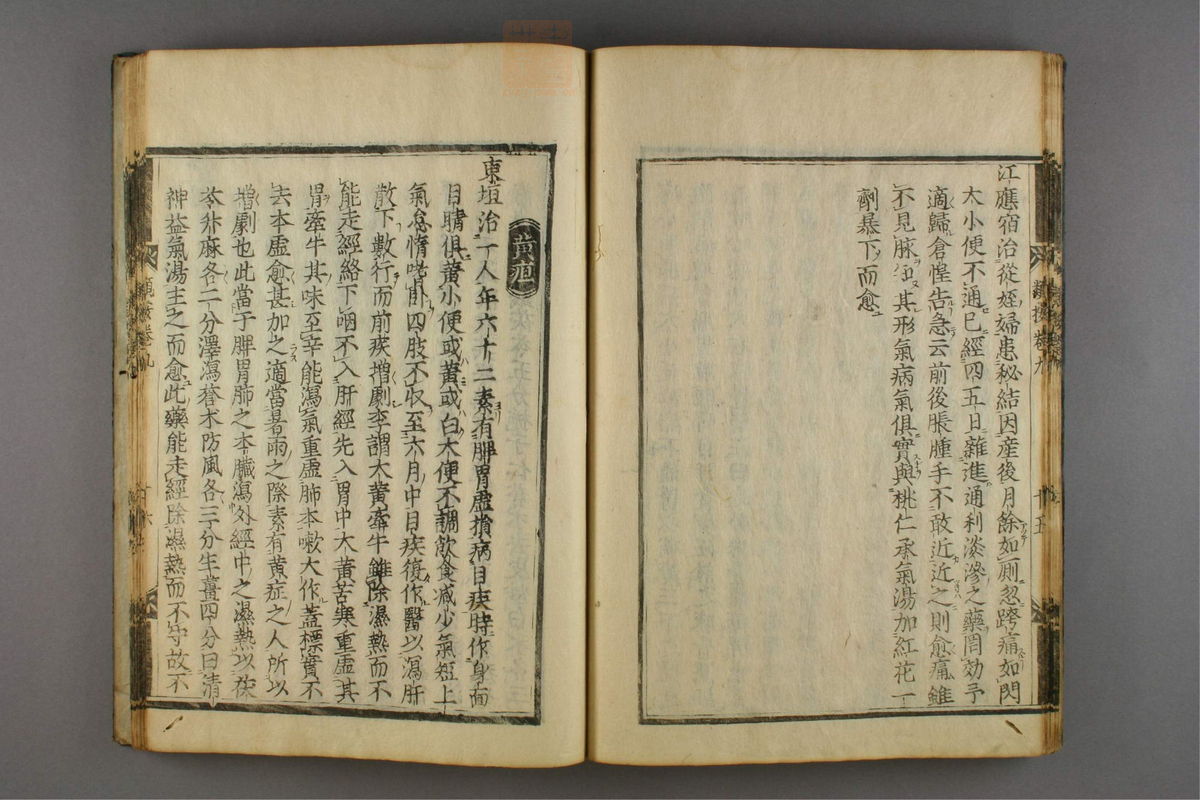 江應宿治從姪婦患秘結因産後月餘如厠忽跨痛如閃
大小便不通已經四五日雜進通利淡滲之藥罔効予
適歸倉惶告急云前後脹腫手不敢近近之則愈痛雖
不見脉
其形氣病氣俱實與桃仁承氣湯加紅花一
劑暴下而愈
黄疸
東垣治一人年六十二素有脾胃虚損病目疾時作身面
目睛俱黄小便或黄或白大便不調飲食减少氣短上
氣怠惰嗜臥四肢不収至六月中目疾復作醫以瀉肝
散下數行而前疾増劇李謂大黄牽牛雖除濕熱而不
能走經絡下咽不入肝經先入胃中大黄苦寒重虚其
胃牽牛其味至辛能瀉氣重虚肺本嗽大作蓋標實不
去本虚愈甚加之適當暑雨之際素有黄症之人所以
増劇也此當于脾胃肺之本臟瀉外經中之濕熱以茯
苓升麻各二分澤瀉蒼术防風各三分生薑四分曰清
神益氣湯主之而愈此藥能走經除濕熱而不守故不